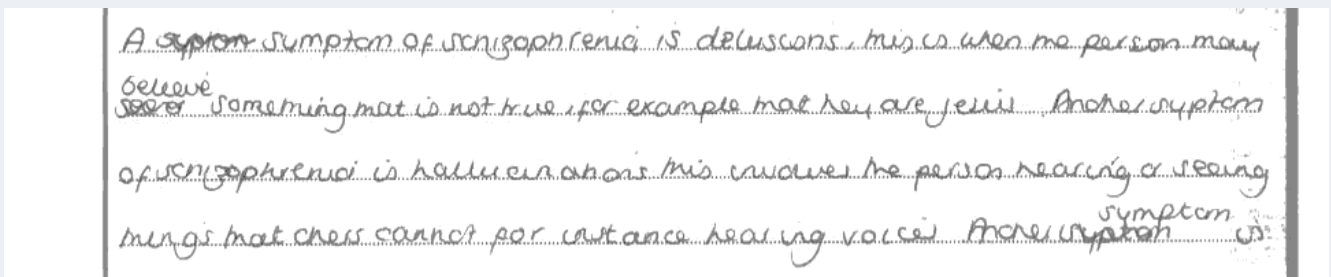 A sypton symptom of schizophrenia is delusions, this is when the person may
believe
seeer something that is not true, for example that hey are jesus Another syptom
of schizophrenia is hallucinations this involves the person hearing or seeing
things that others cannot for instance hearing voices Another syptom symptom is